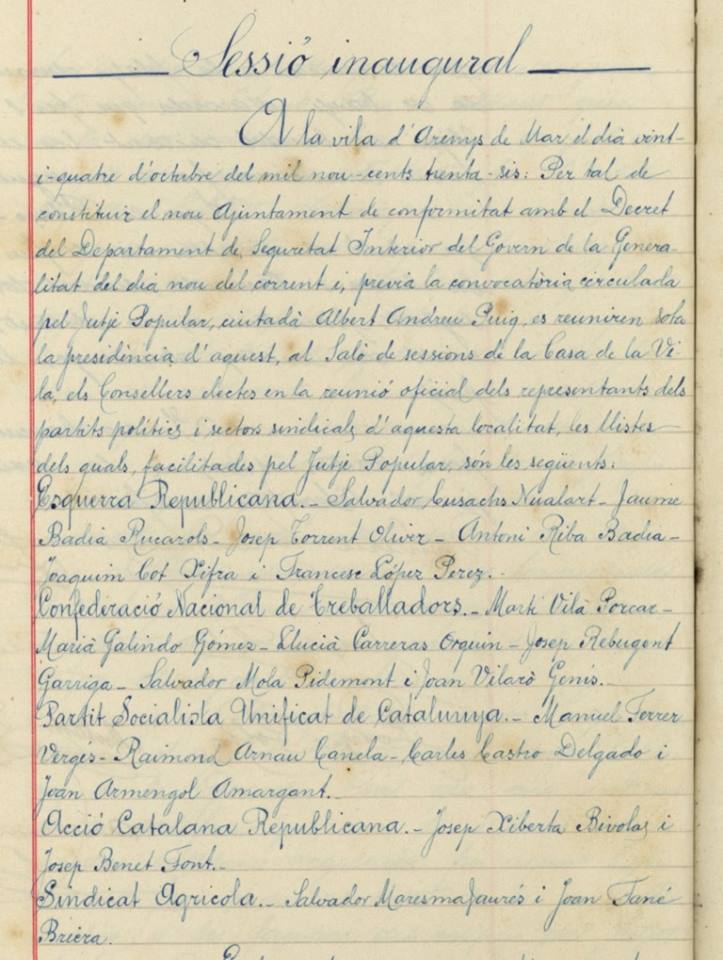 Sessió inaugural
A la vila d'Arenys de Mar el dia vint-
i-quatre d'octubre del mil nou-cents trenta-sis: Per tal de
constituir el nou Ajuntament de conformitat amb el Decret
del Departament de Seguretat Interior del Govern de la Genera-
litat del dia nou del corrent i, prèvia la convocatòria circulada
pel Jutje Popular, ciutadà Albert Andreu Puig, es reuniren sota
la presidència d'aquest, al Saló de sessions de la Casa de la Vi-
la, els Consellers electes en la reunió oficial dels representants dels
partits polítics i sectors sindicals d'aquesta localitat, les llistes
dels quals, facilitades pel Jutje Popular, són les següents:
Esquerra Republicana.- Salvador Cusachs Nualart - Jaume
Badia Rucarols - Josep Torrent Oliver - Antoni Riba Badia -
Joaquim Cot Xifra i Francesc López Perez.-
Confederació Nacional de Treballadors.- Martí Vilà Porcar -
Marià Galindo Gómez - Llucià Carreras Orquin - Josep Rebugent
Garriga - Salvador Mola Pidemont i Joan Vilaró Genís.-
Partit Socialista Unificat de Catalunya.- Manuel Ferrer
Vergés - Raimond Arnau Canela - Carles Castro Delgado i
Joan Armengol Amargant.-
Acció Catalana Republicana.- Josep Xiberta Bivolas i
Josep Benet Font.-
Sindicat Agrícola.- Salvador Maresma Jaurés i Joan Tané
Briera.